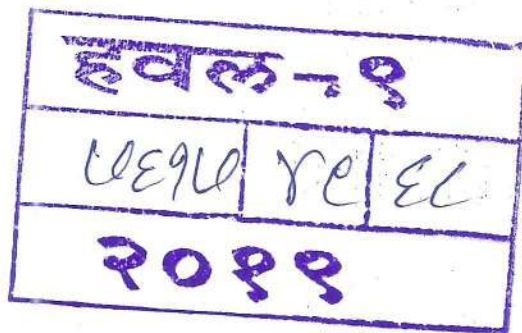 हवल-१
५६१५ ४९ ६८
२०११